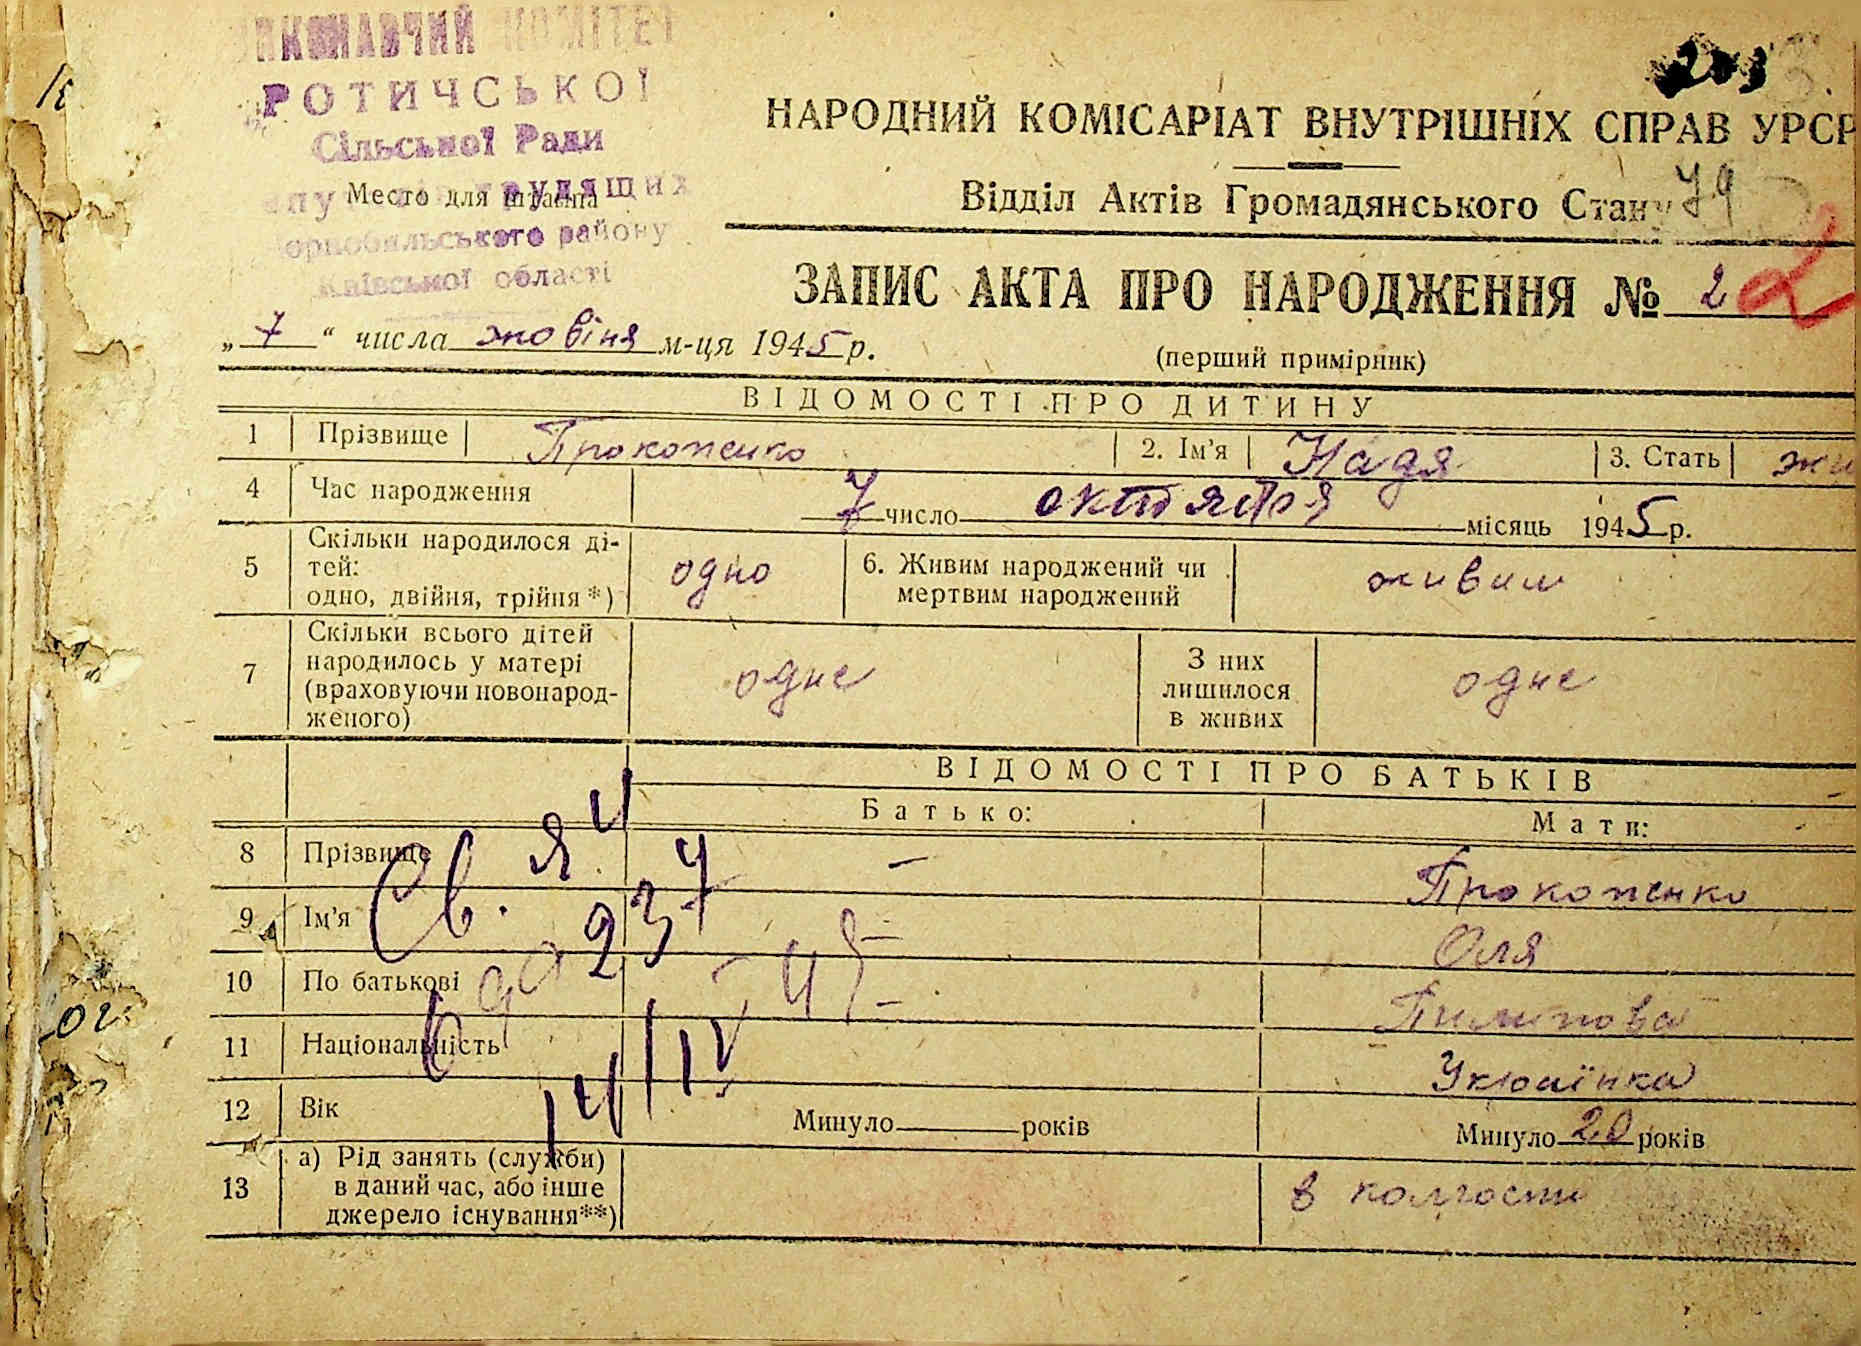 ВИКОНАВЧИЙ КОМІТЕТ
РОТИЧСЬКОЇ
Сільської Ради
трудящих
Место для штампа
Чорнобильського району
Київської області
НАРОДНИЙ КОМІСАРІАТ ВНУТРІШНІХ СПРАВ УРСР
Відділ Актів Громадянського Стану 79
ЗАПИС АКТА ПРО НАРОДЖЕННЯ № 2 2
„7“ числа жовтня м-ця 1945 р.
(перший примірник)
ВІДОМОСТІ ПРО ДИТИНУ
1 Прізвище Прокопенко 2. Ім'я Надя 3. Стать жи
4 Час народження 7 число октября місяць 1945 р.
5 Скільки народилося ді-
тей:
одно, двійня, трійня*) одно 6. Живим народжений чи
мертвим народжений живим
7 Скільки всього дітей
народилось у матері
(враховуючи новонарод-
женого) одне З них
лишилося
в живих одне
ВІДОМОСТІ ПРО БАТЬКІВ
Батько: Мати:
8 Прізвище — Прокопенко
9 Ім'я — Оля
10 По батькові — Пилипова
11 Національність Українка
12 Вік Минуло років Минуло 20 років
13 а) Рід занять (служби)
в даний час, або інше
джерело існування**) в колгоспі
Св. ЯЧ
237
14/IV